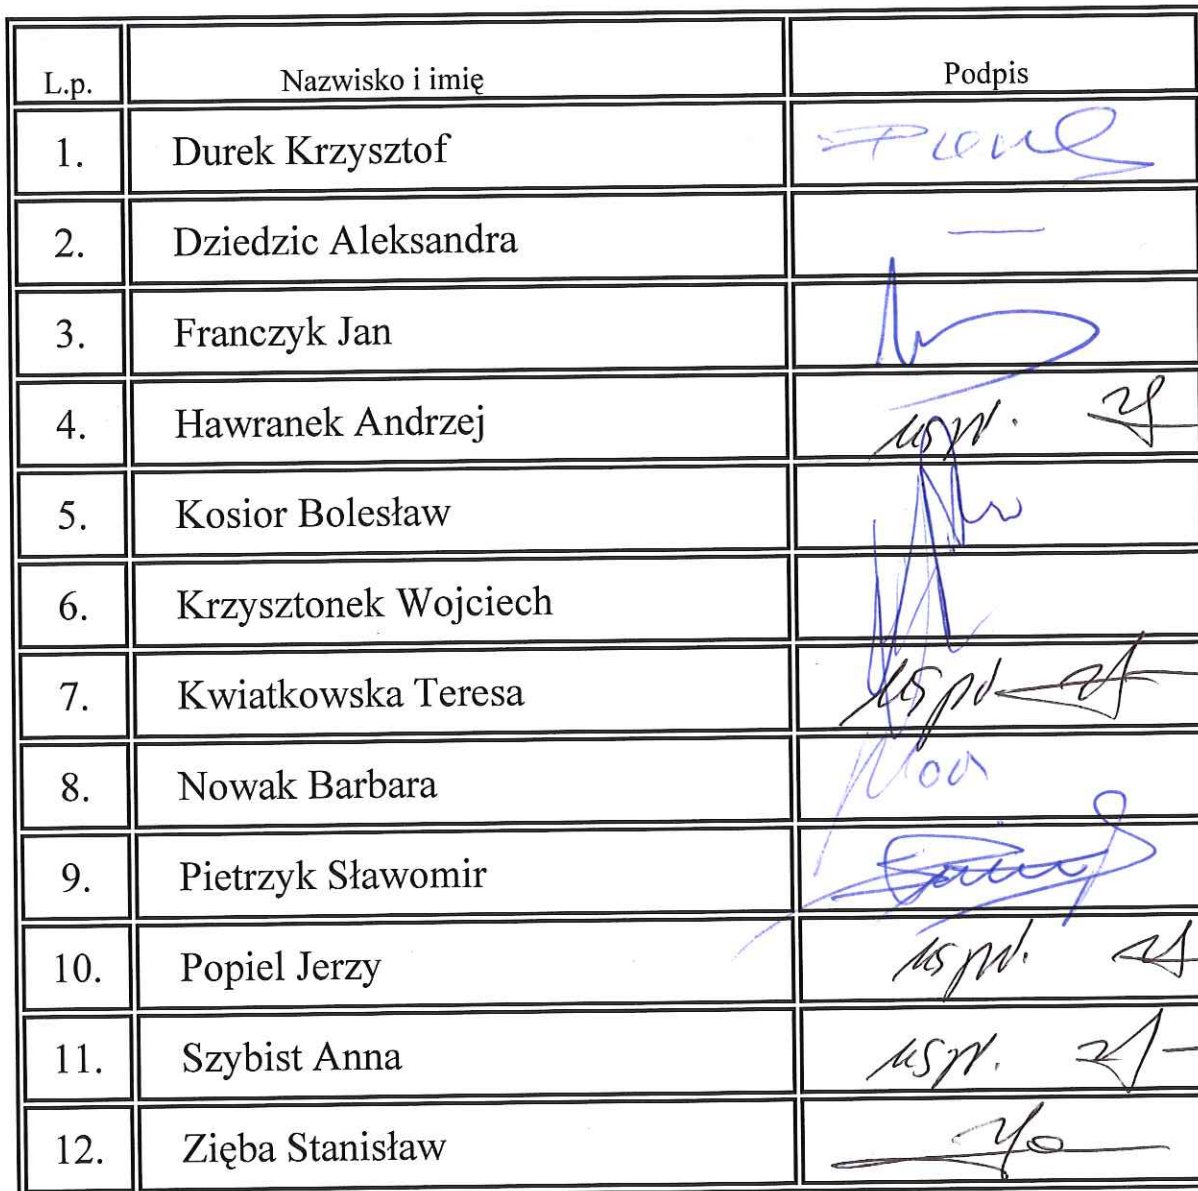 L.p. Nazwisko i imię Podpis
1. Durek Krzysztof
2. Dziedzic Aleksandra —
3. Franczyk Jan
4. Hawranek Andrzej
5. Kosior Bolesław
6. Krzysztonek Wojciech
7. Kwiatkowska Teresa
8. Nowak Barbara
9. Pietrzyk Sławomir
10. Popiel Jerzy
11. Szybist Anna
12. Zięba Stanisław